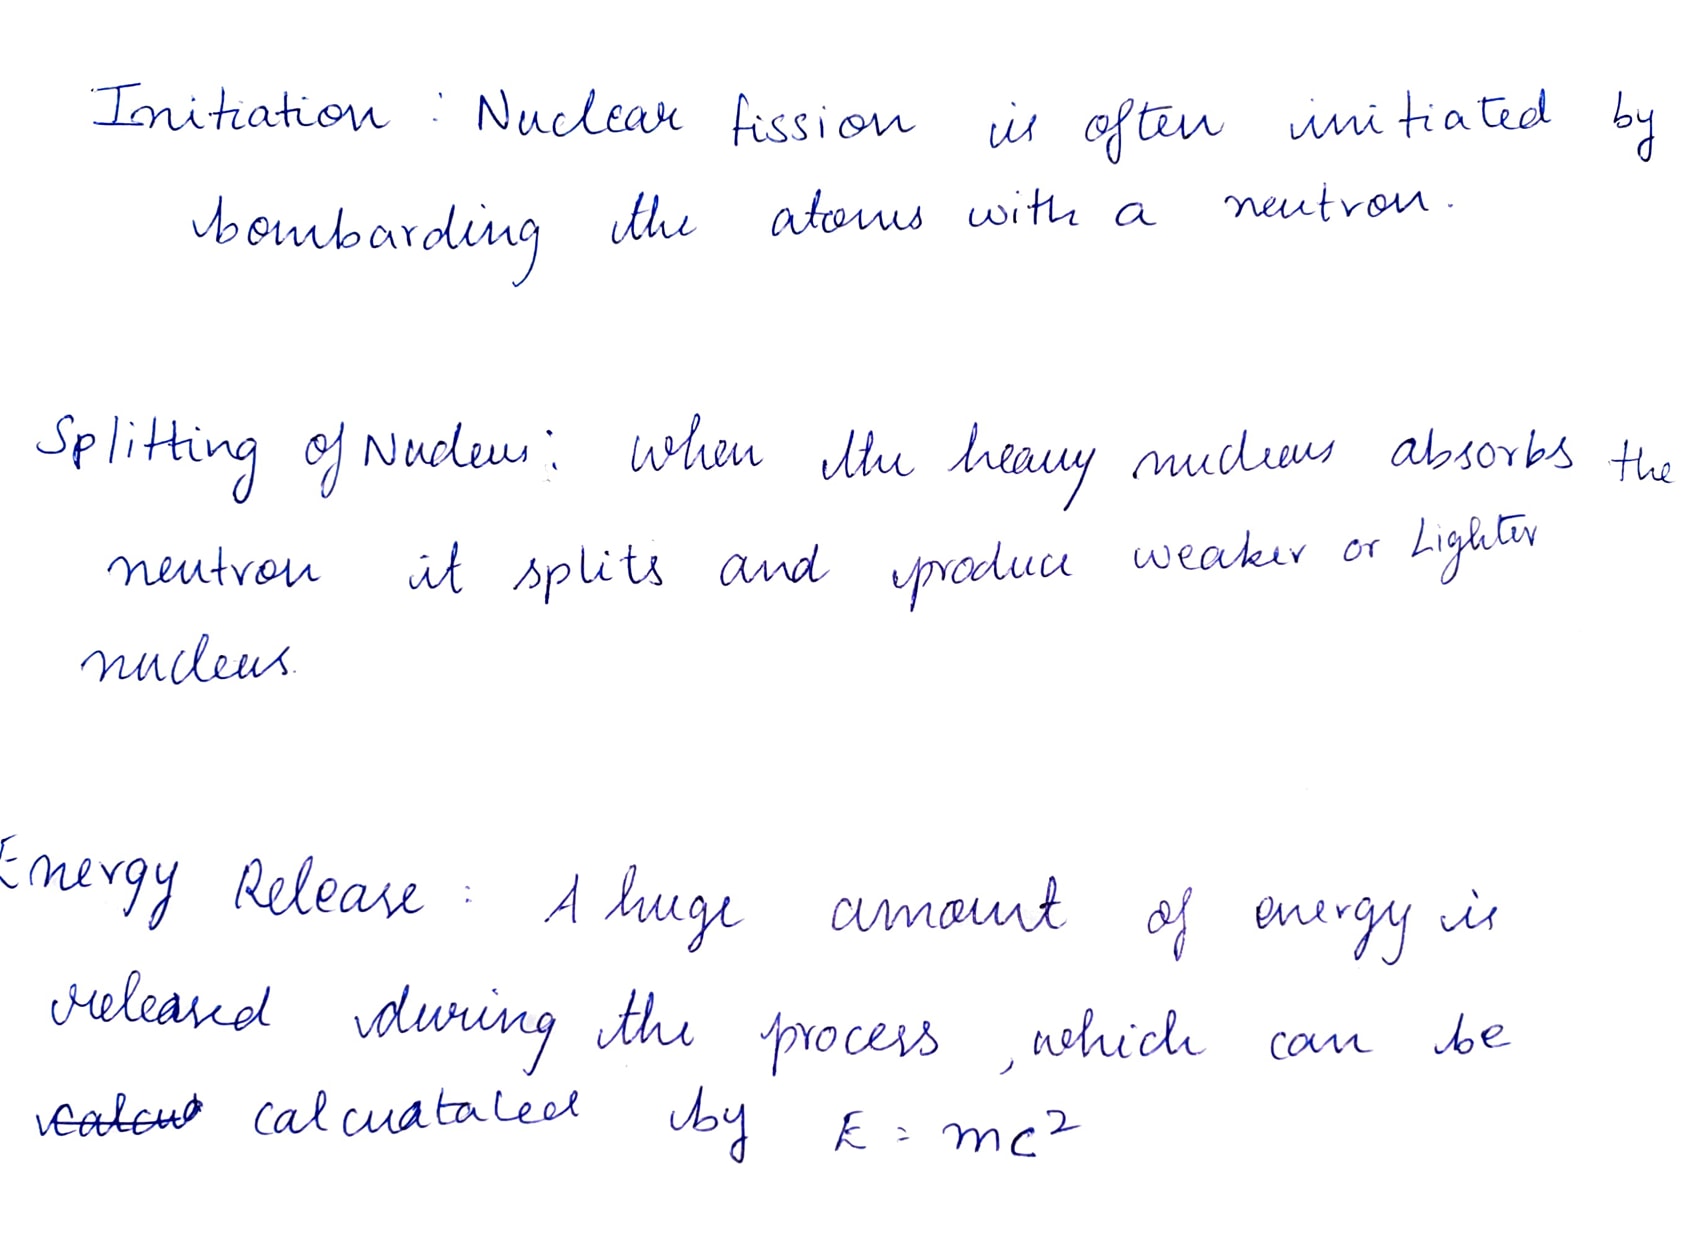 Initiation : Nuclear fission is often initiated by
bombarding the atoms with a neutron.
Splitting of Nucleus: when the heavy nucleus absorbs the
neutron it splits and produce weaker or Lighter
nucleus.
Energy Release : A huge amount of energy is
released during the process, which can be
calcu calcuataled by E = mc²